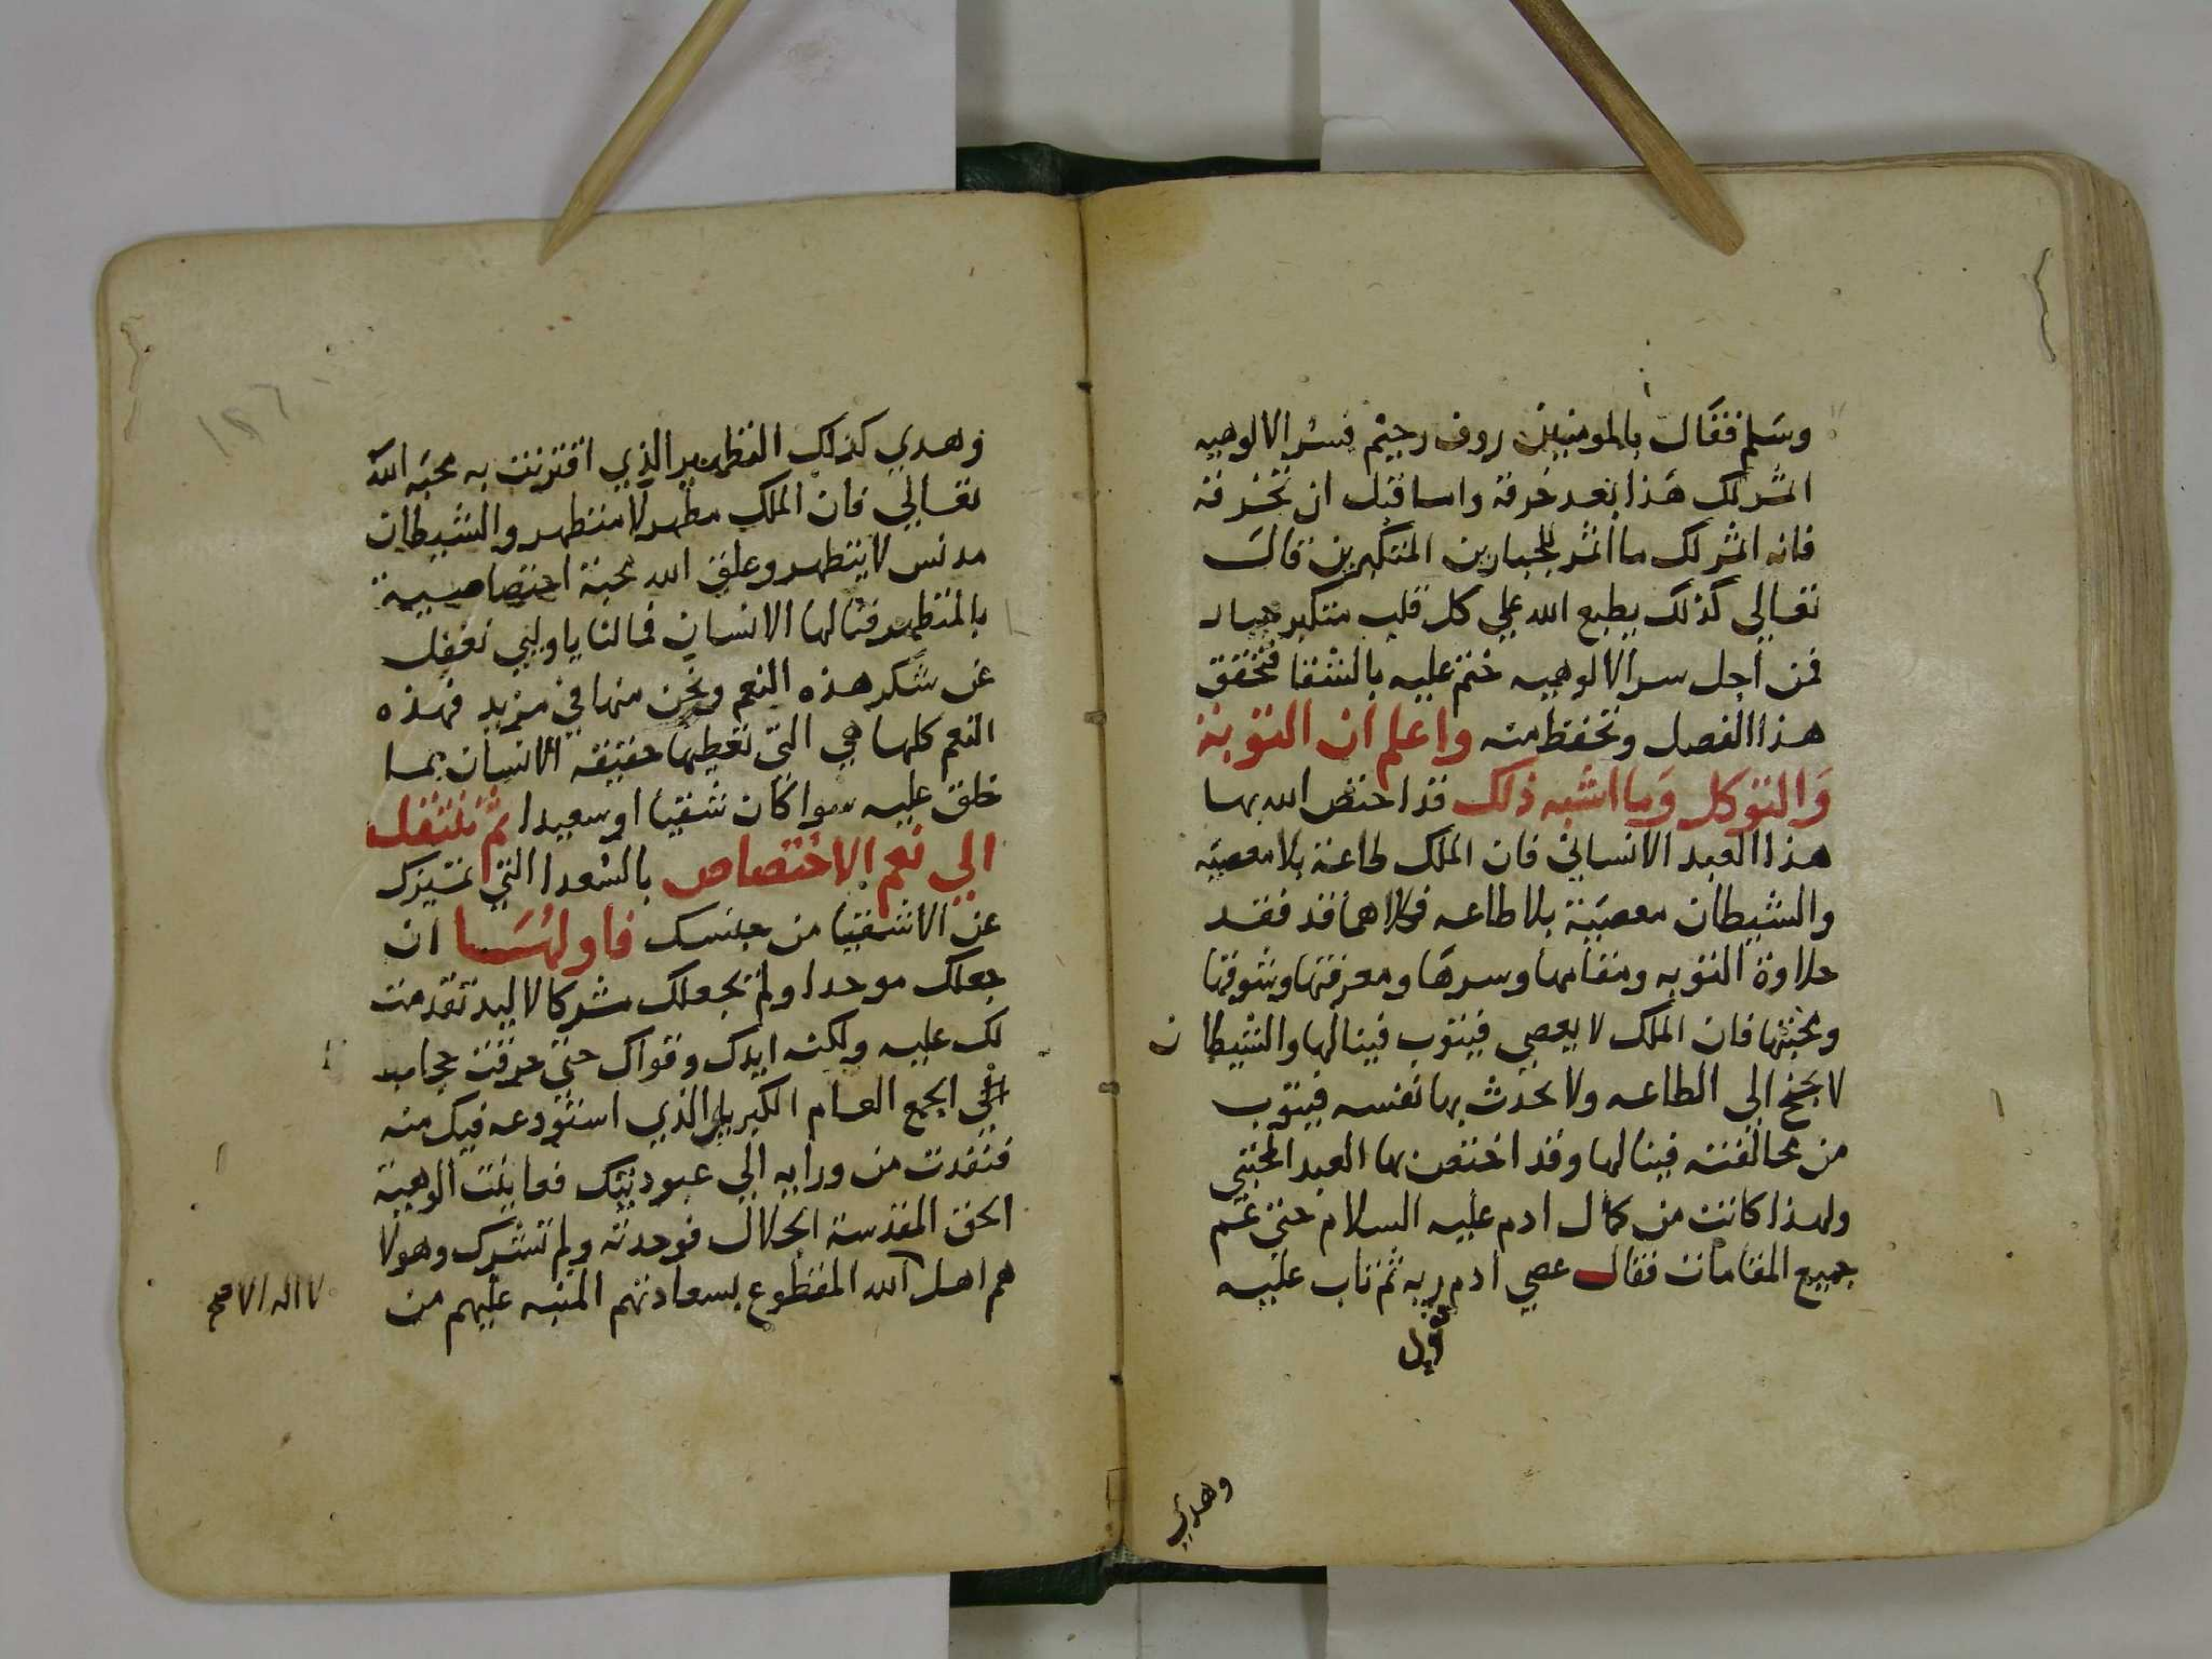 وسلم فقال بالمومنين روف رحيم فسر الالوهيه
اثمر لك هذا بعد خرقه واما قبل ان تخرقه
فانه اثمر لك ما اثمر للجبارين المتكبرين قال
تعالي كذلك يطبع الله علي كل قلب متكبر جبار
فمن اجل سر الالوهيه ختم عليه بالشقا فتحقق
هذا الفصل وتحفظ منه واعلم ان التوبة
والتوكل وما اشبه ذلك قد اختص الله بها
هذا العبد الانساني فان الملك طاعة بلا معصية
والشيطان معصية بلا طاعه فكلاهما قد فقد
حلاوة التوبه ومقامها وسرها ومعرفتها وشوقها
ومحبتها فان الملك لا يعصي فيتوب فينالها والشيطان
لا يجنح الي الطاعه ولا يحدث بها نفسه فيتوب
من مخالفته فينالها وقد اختص بها العبد المجتبي
ولهذا كانت من كمال ادم عليه السلام حتي عم
جميع المقامات فقال عصي ادم ربه ثم تاب عليه
وهدي
وهدي كذلك التطهير الذي اقترنت به محبة الله
تعالي فان الملك مطهر لا متطهر والشيطان
مدنس لا يتطهر وعلق الله محبة اختصاصية
بالمتطهر فنالها الانسان فما لنا يا وليي نغفل
عن شكر هذه النعم ونحن منها في مزيد فهذه
النعم كلها هي التي تعطيها حقيقه الانسان بما
خلق عليه سوا كان شقيا او سعيدا ثم تنتقل
الي نعم الاختصاص بالسعدا التي تميزك
عن الاشقيا من جنسك فاولها ان
جعلك موحدا ولم يجعلك مشركا لا ليد تقدمت
لك عليه ولكنه ايدك وقواك حتي خرقت حجاب
اني الجمع العام الكبريا الذي استودعه فيك منه
فنفذت من ورايه الي عبوديتك فعاينت الوهية
الحق المقدسة الجلال فوحدته ولم تشرك وهولا
هم اهل الله المقطوع بسعادتهم المنبه عليهم من
لا اله الا صح